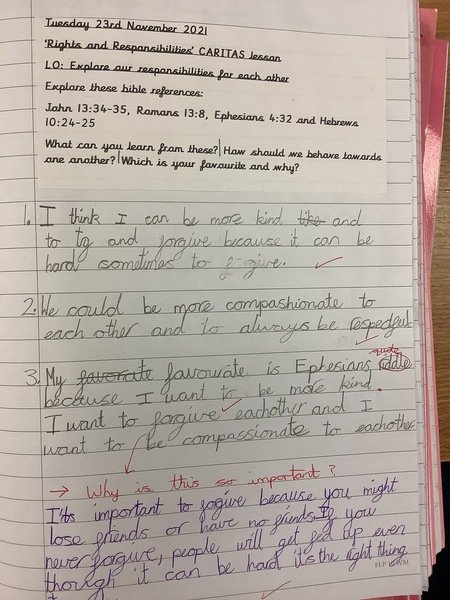 Tuesday 23rd November 2021
'Rights and Responsibilities' CARITAS lesson
LO: Explore our responsibilities for each other
Explore these bible references:
John 13:34-35, Romans 13:8, Ephesians 4:32 and Hebrews
10:24-25
What can you learn from these? How should we behave towards
one another? Which is your favourite and why?
1. I think I can be more kind like and
to try and forgive because it can be
hard sometimes to forgive.
2. We could be more compashionate to
each other and to always be respecful
quote
3. My favorate favouvate is Ephesians riddle
because I want to be more kind.
I want to forgive eachother and I
want to be compassionate to eachother
→ Why is this so important?
It's important to forgive because you might
lose friends or have no friends. If you
never forgive, people will get fed up even
though it can be hard it's the right thing